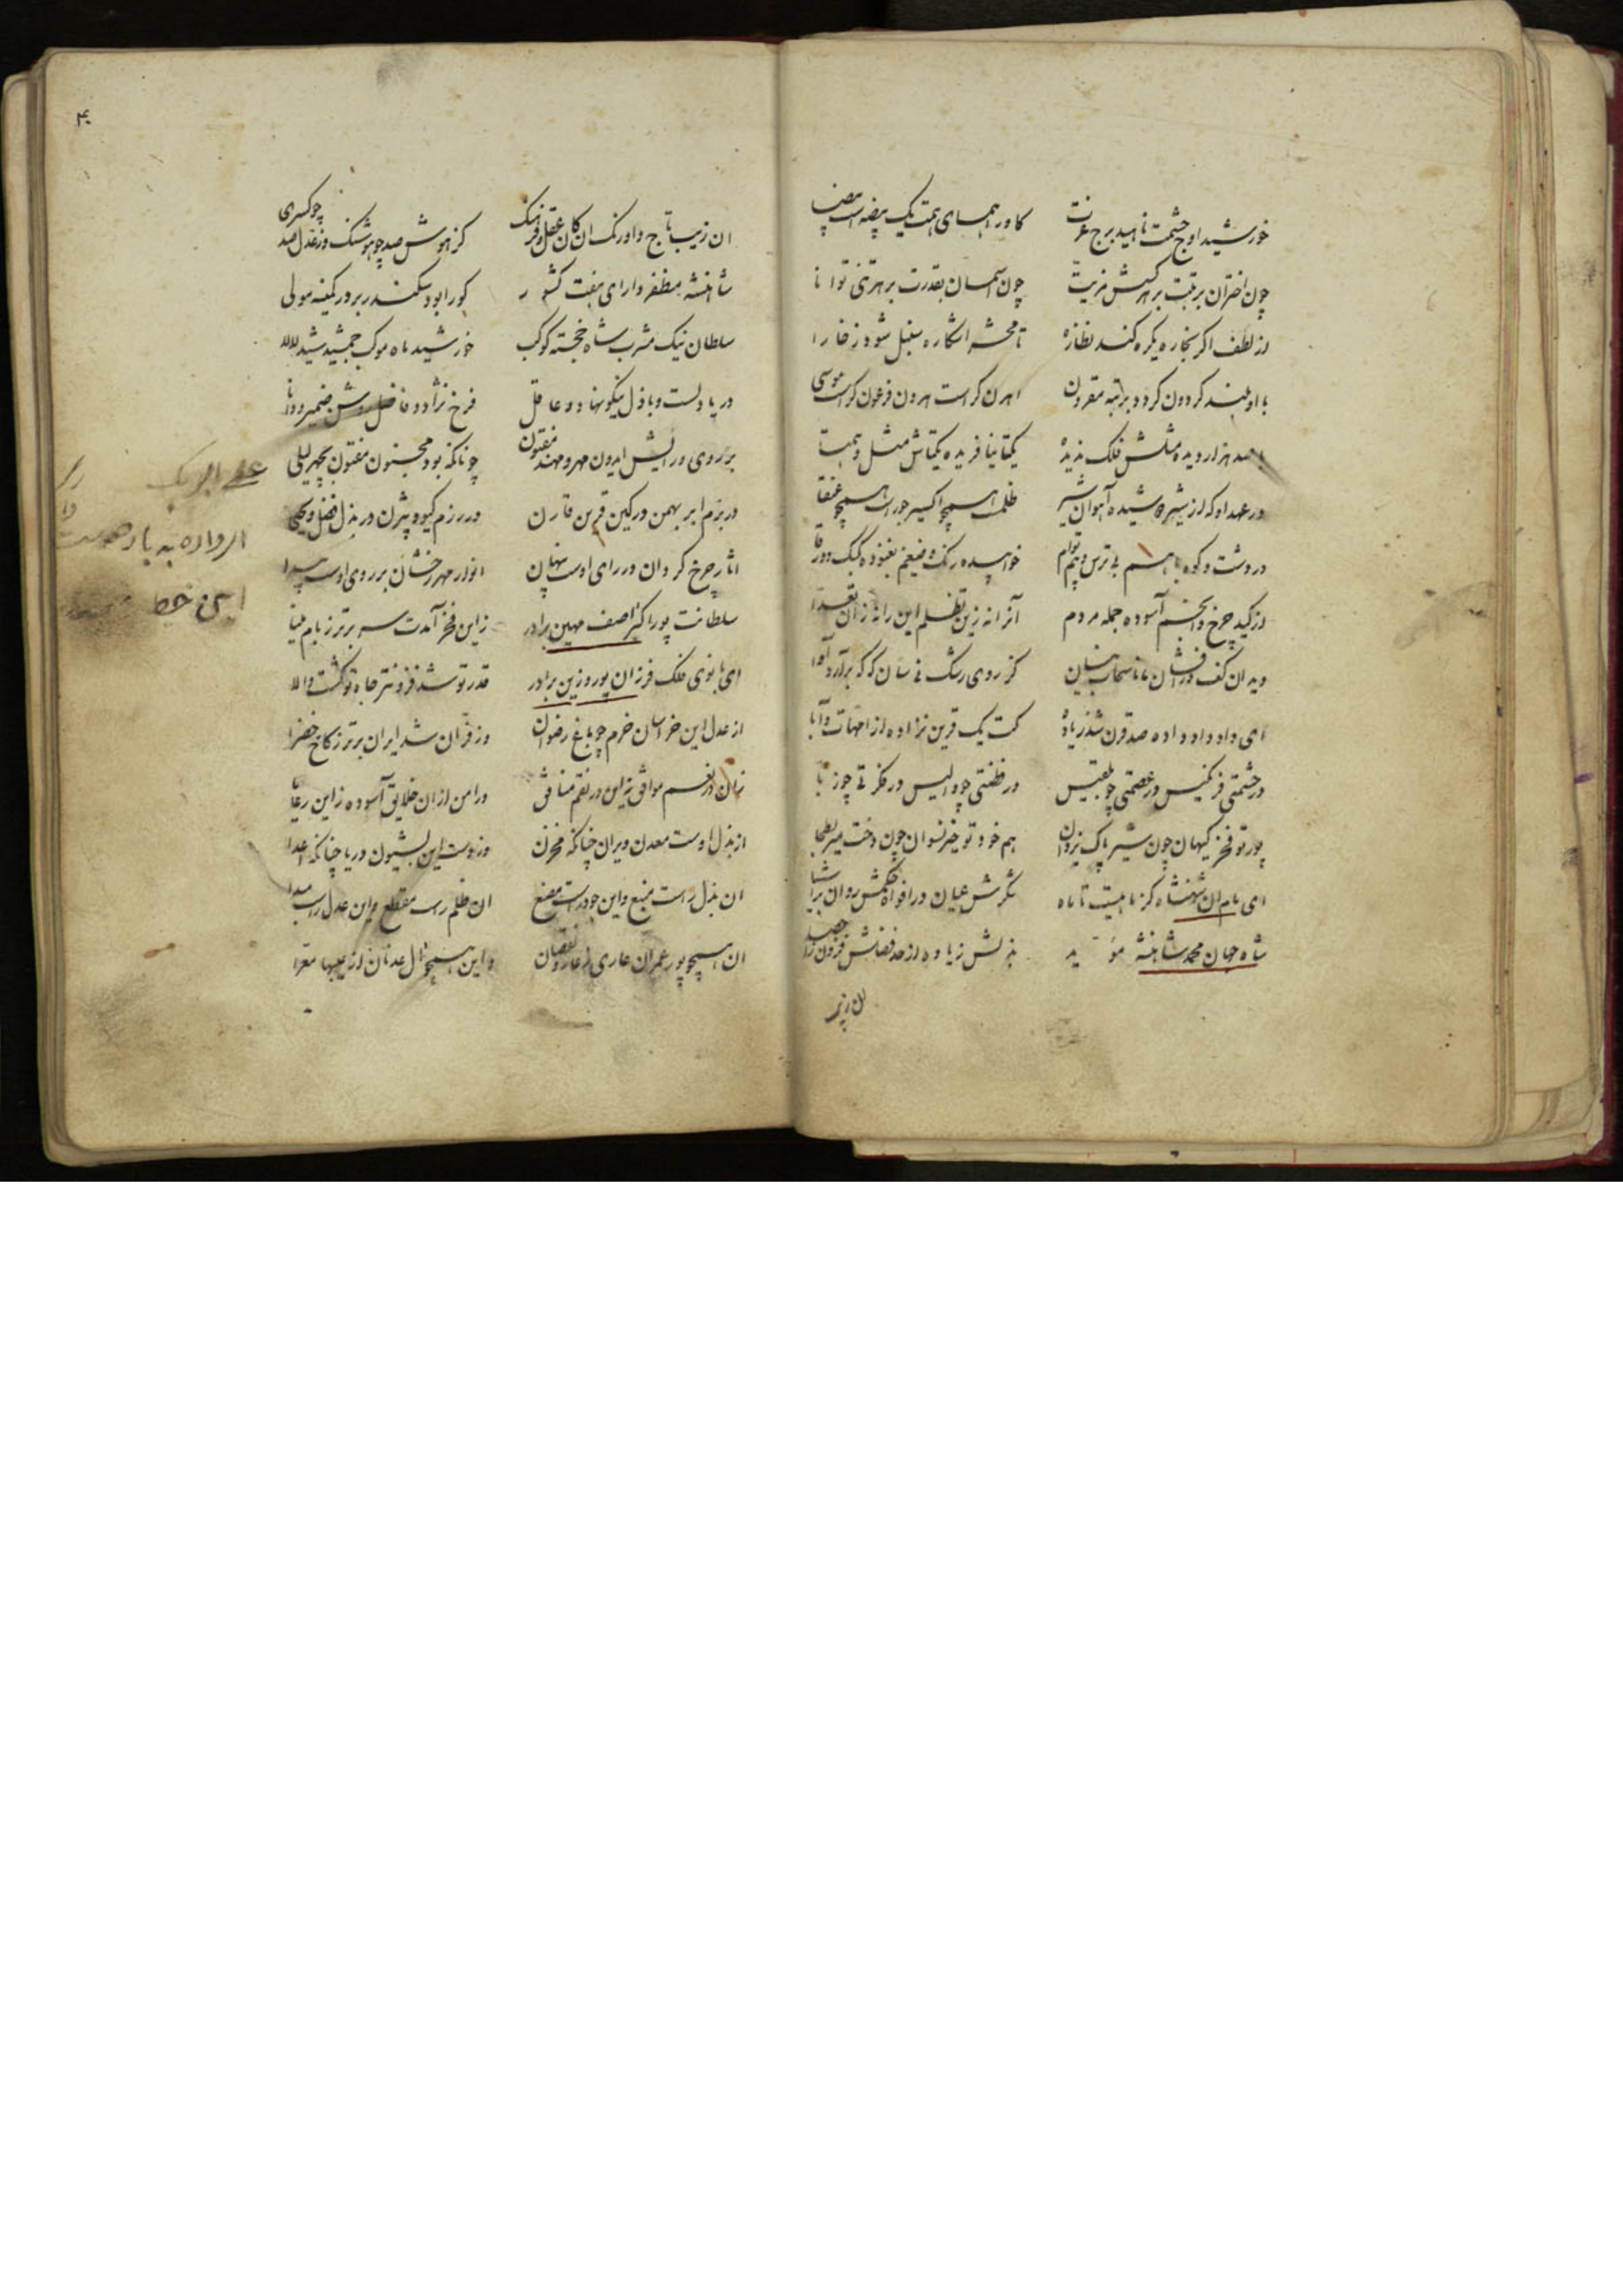 خورشید اوج حشمت ناهید برج عزت
کاورا همای همت یک بیضه است بیضا
چون اختران برتبت بر هر کسش مزیت
چون آسمان بقدرت بر هر تنی توانا
از لطف اگر بخاره یکره کند نظاره
تا محشر اشکاره سنبل شود ز خارا
با او بلند گردون گردد برتبه مقرون
اهرن گر است هرون فرعون گر است موسی
با صد هزار دیده مثلش فلک ندیده
یکتا نیافریده یکتاش مثل و همتا
در عهد او که از شیر نوشیده آهوان شیر
ظلمت همچو اکسیر جور است همچو عنقا
در دشت و کوه با هم بی ترس و بیم توام
خوابیده رنگ و ضیغم بغنوده کبک و ورقا
از کید چرخ و انجم آسوده جمله مردم
آنرا نه زین تظلم این را نه زان تعدا
دید آن کف درافشان مانا سحاب نیسان
کز روی رشک نی سان که که برآرد آوا
ای داد داد داده صد قرن شد زیاده
کت یک قرین نزاده از امهات و آبا
در حشمتی فرنگیس در عصمتی چو بلقیس
در فطنتی چو والیس در فکرتی چو زبا
پور تو فخر کیهان چون شیر پاک یزدان
هم خود تو خیر نسوان چون دخت میر بطحا
ای مام آن شهنشاه کز ماهیست تا ماه
شکرش عیان در افواه حکمش روان بر اشیا
شاه جهان محمد شاهنشه مؤید
بذلش زیاده از حد فضلش فزون ز احصا
ان زیب
۴۰
ان زیب تاج و اورنگ ان کان عقل و فرهنگ
کز هوش صد چو هوشنگ وز عدل صد چو کسری
شاهنشه مظفر دارای هفت کشور
کورا بود سکندر بر در کمینه مولی
سلطان نیک مشرب شاه خجسته کوکب
خورشید ماه موکب جمشید شید للالا
دریا دلست و باذل نیکونهاد و عاقل
فرخ نژاد و فاضل روشن ضمیر و دانا
بر روی و رایش ایدون مهر و مهند مفتون
چونانکه بود مجنون مفتون بچهر لیلی
در بزم ابر بهمن در کین قرین قارن
در رزم گیو و بیژن در بذل فضل و یحیی
اثار چرخ گردان در رای اوست پنهان
انوار مهر رخشان بر روی اوست پیدا
سلطانت پور اکبر آصف مهین برادر
زاین فخر آمدت سر برتر ز بام مینا
ای بانوی فلک فر زان پور و زین برادر
قدر تو شد فزونتر جاه تو گشت والا
از عدل این خراسان خرم چو باغ رضوان
وز فر آن شد ایران برتر ز کاخ خضرا
زان در نغم موافق زاین در نقم منافق
در امن از ان خلایق آسوده زاین رعایا
از بذل اوست معدن ویران چنانکه مخزن
وز دست این بشیون دریا چنانکه اعدا
ان بذل راست منبع و این جود راست مصنع
ان ظلم راست مقطع و این عدل راست مبدا
ان همچو پور عمران عاری ز عار و نقصان
و این همچو ال عدنان از عیبها معرا